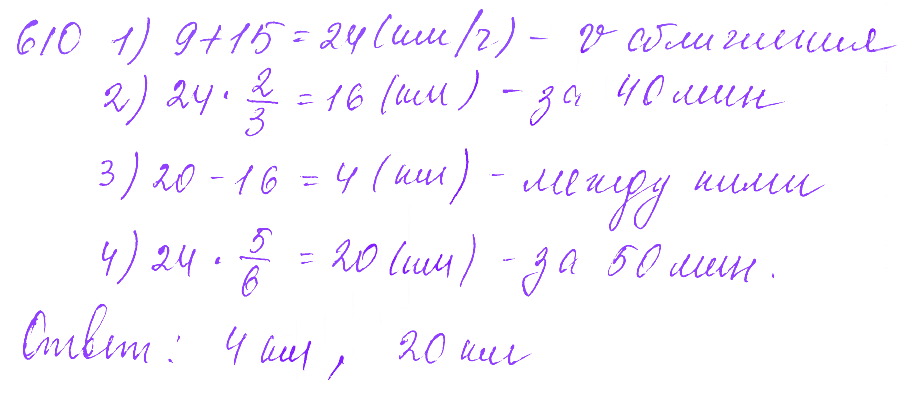 610 1) 9+15=24(км/ч) - v сближения
2) 24 · 2/3 = 16 (км) - за 40 мин
3) 20 - 16 = 4 (км) - между ними
4) 24 · 5/6 = 20 (км) - за 50 мин.
Ответ: 4 км, 20 км